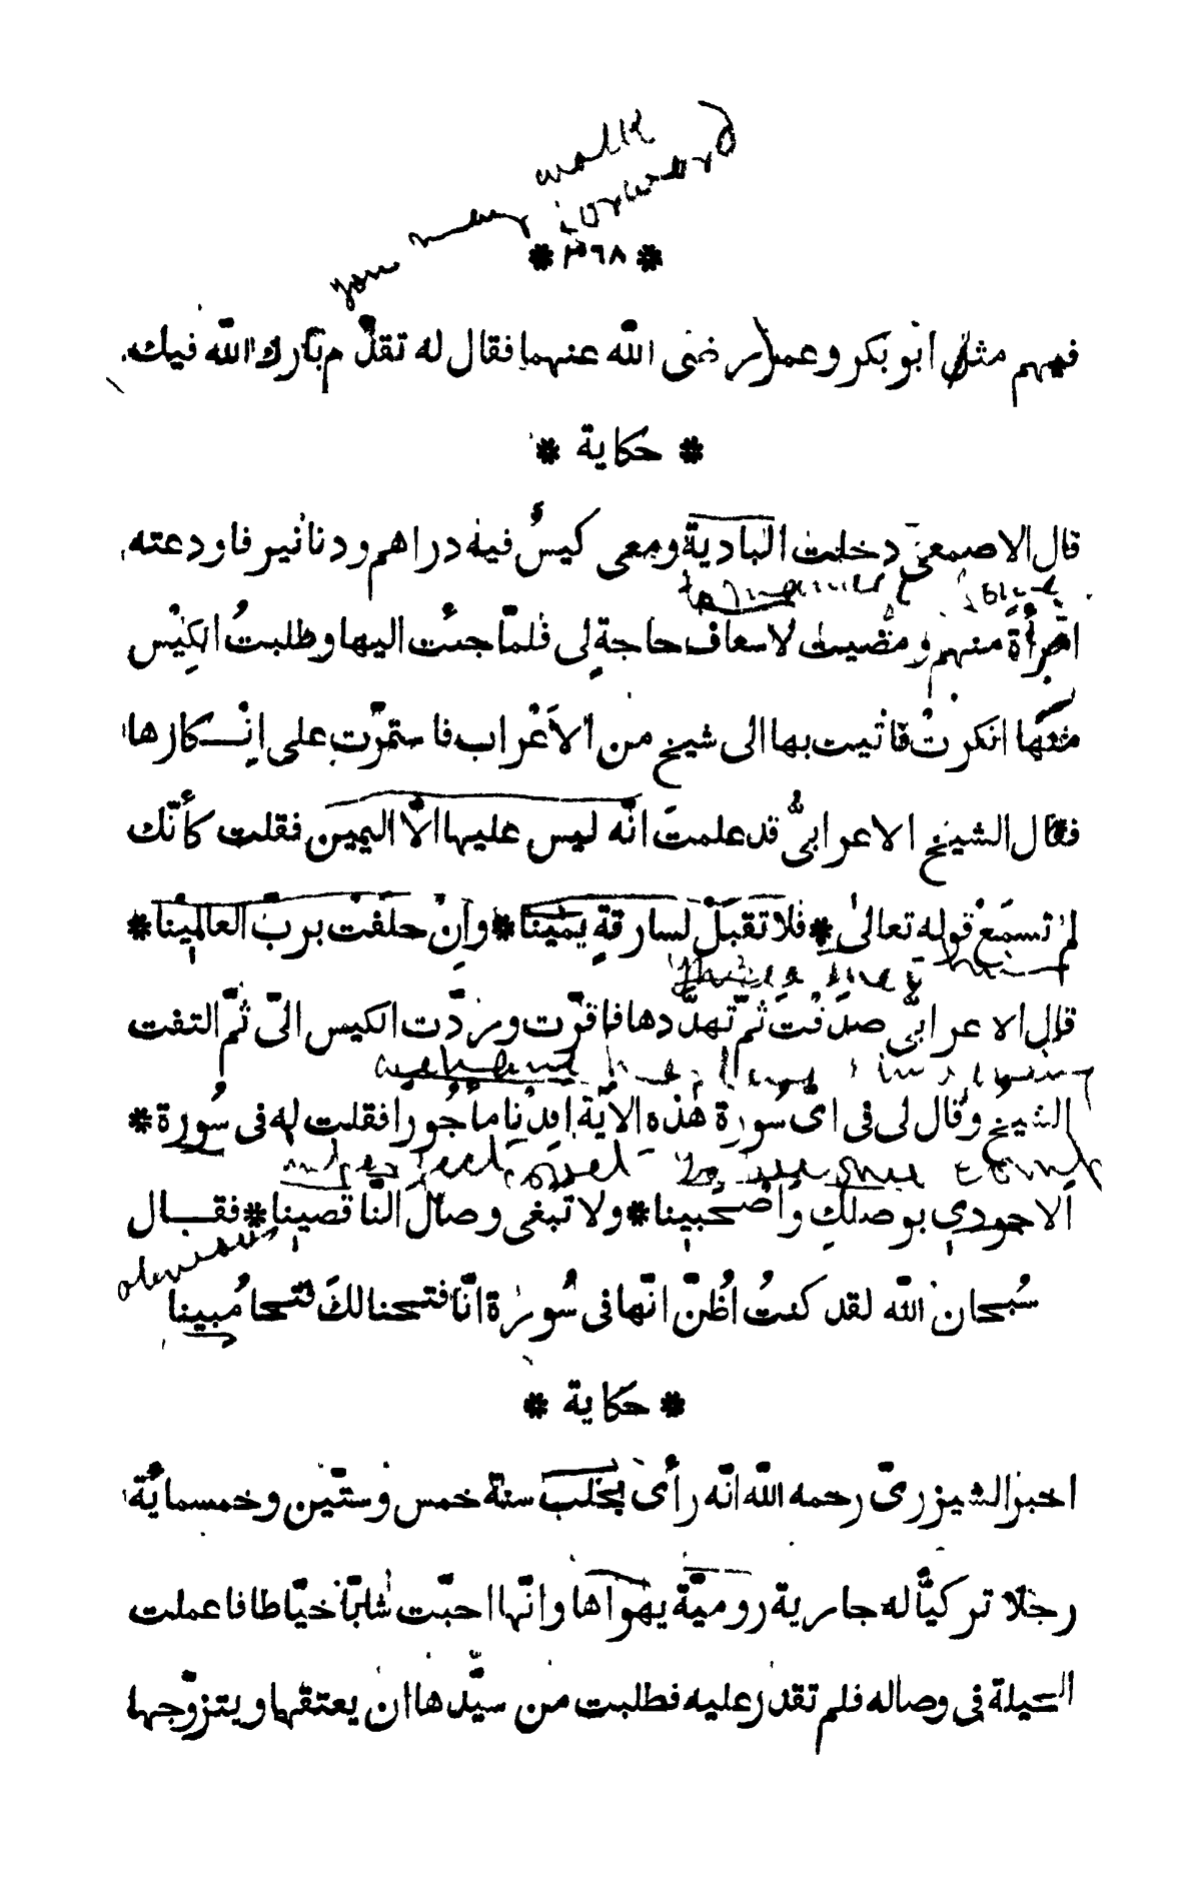 you may walk
forward
* ٣٦٨ *
فيهم مثل ابو بكر وعمر رضى الله عنهما فقال له تقدّم بارك الله فيك
* حكاية *
قال الاصمعىّ دخلت البادية ومعى كيسٌ فيه دراهم ودنانير فاودعته
امرأةً منهم ومضيت لاسعاف حاجةٍ لى فلمّا جئت اليها وطلبتُ الكِيْس
منها انكرتْ فاتيت بها الى شيخ من الاَعْراب فاستمرّت على انْكارها
فقال الشيخ الاعرابىُّ قد علمتَ انّه ليس عليها الّا اليمين فقلت كأنّك
لم تسمَعْ قوله تعالىٰ * فلا تقبَلْ لسارقةٍ يمْينا * وانْ حلَفْت بربّ العالمينا *
قال الاعرابىُّ صدَقْتَ ثمّ تهدَّدها فاقرّت وردّت الكيس الىّ ثمّ التفت
الشيخُ وقال لى فى اىّ سُورة هٰذه الاٰية ابدْنا مأجُورًا فقلت له فى سُورة *
الا جودى بوصلكِ واصْحَبينا * ولا تبغى وصالَ النّاقصينا * فقال
سُبحان الله لقد كنتُ اظُنّ انّها فى سُورة انّا فتحنا لكَ فتحا مُبينا
* حكاية *
اخبر الشيزرىّ رحمه الله انّه رأى بحلب سنة خمس وستّين وخمسمائة
رجلا تركيًّا له جارية روميّة يهواها وانّها احبّت شابّا خيّاطا فاعملت
الحيلة فى وصاله فلم تقدر عليه فطلبت من سيّدها ان يعتقها ويتزوّجها